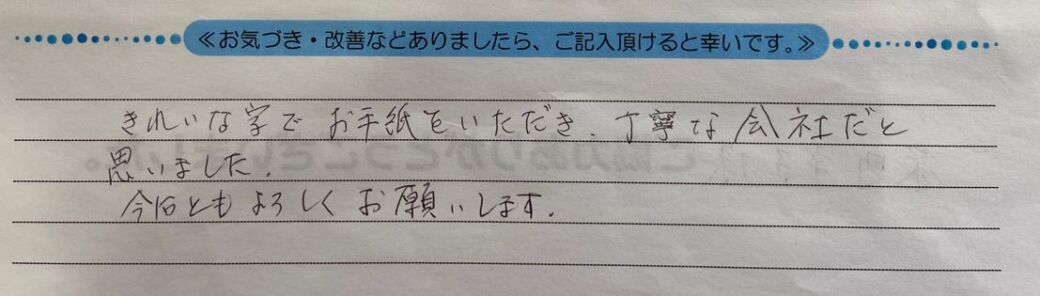 ≪お気づき・改善などありましたら、ご記入頂けると幸いです。≫
きれいな字で お手紙をいただき、丁寧な会社だと
思いました。
今后ともよろしくお願いします。